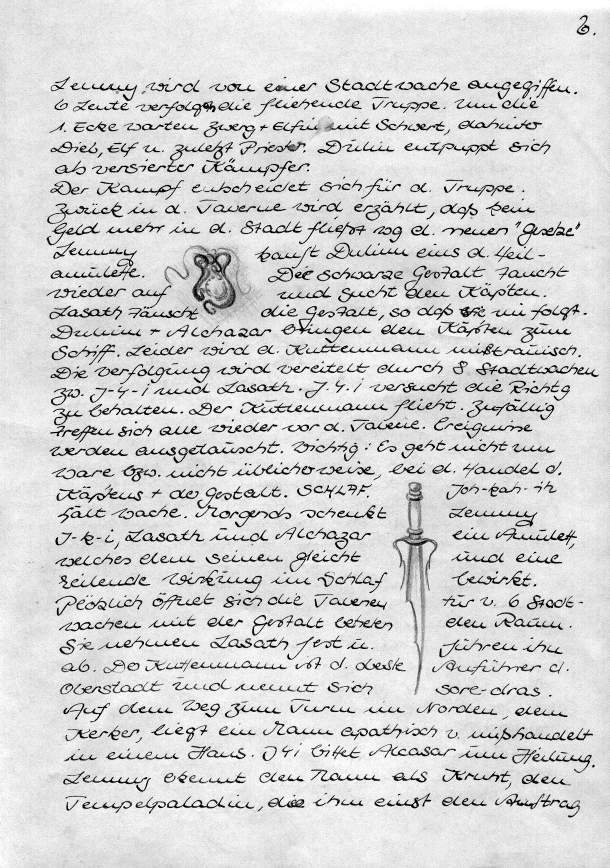 6.
Lemmy wird von einer Stadtwache angegiffen.
6 Leute verfolgen die fliehende Truppe. Um die
1. Ecke warten Zwerg + Elfin mit Schwert, dahinter
Dieb, Elf u. zuletzt Priester. Dulim entpuppt sich
als versierter Kämpfer.
Der Kampf entscheidet sich für d. Truppe.
Zurück in d. Taverne wird erzählt, daß kein
Geld mehr in d. Stadt fließt wg d. neuen "Gesetze"
Lemmy kauft Dulim eins d. Heil-
amulette. Die schwarze Gestalt taucht
wieder auf und sucht den Käpten.
Lasath täuscht die Gestalt, so daß sie ihm folgt.
Dulim + Alchazar bringen den Käpten zum
Schiff. Leider wird d. Kuttenmann mißtrauisch.
Die Verfolgung wird vereitelt durch 8 Stadtwachen
zw. J-4-i und Lasath. J.4.i versucht die Richtg
zu behalten. Der Kuttenmann flieht. Zufällig
treffen sich alle wieder vor d. Taverne. Ereignisse
werden ausgetauscht. Wichtig: Es geht nicht um
Ware bzw. nicht üblicherweise, bei d. Handel d.
Käptens + der Gestalt. SCHLAF. Joh-kah-ih
hält Wache. Morgends schenkt Lemmy
J-k-i, Lasath und Alchazar ein Amulett,
welches dem seinen gleicht und eine
heilende Wirkung im Schlaf bewirkt.
Plötzlich öffnet sich die Tavernen tür u. 6 Stadt-
wachen mit der Gestalt betreten den Raum.
Sie nehmen Lasath fest u. führen ihn
ab. Der Kuttenmann ist d. oberste Anführer d.
Oberstadt und nennt sich sore-dras.
Auf dem Weg zum Turm im Norden, dem
Kerker, liegt ein Mann apathisch u. mißhandelt
in einem Haus. J4i bittet Alcasar um Heilung.
Lemmy erkennt den Mann als den
Tempelpaladin, der ihm einst den Auftrag